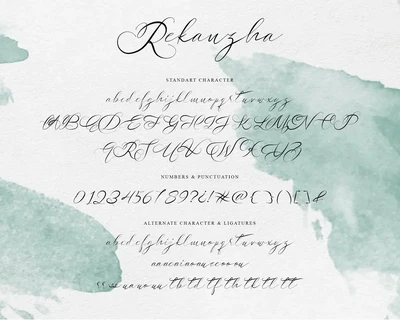 Rekanzha
STANDART CHARACTER
abcdefghijklmnopqrstuvwxyz
ABCDEFGHIJKLMNOP
QRSTUVWXYZ
NUMBERS & PUNCTUATION
0123456789?!#@{}()[]&
ALTERNATE CHARACTER & LIGATURES
abcdefghijklmnopqrstuvwxyz